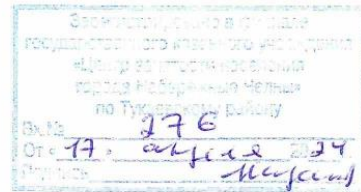 Зарегистрировано в филиале
государственного казенного учреждения
«Центр занятости населения
города Набережные Челны»
по Тукаевскому району
Вх.№ 276
От « 17 » апреля 2024